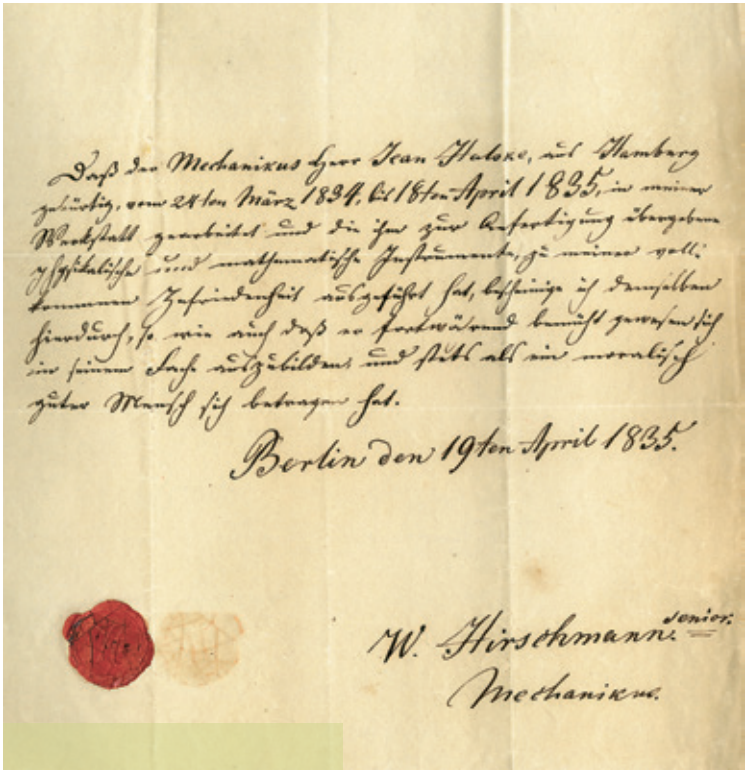 Daß der Mechanikus Herr Jean Halske, aus Hamburg
gebürtig, vom 24ten März 1834, bis 18ten April 1835, in meiner
Werkstatt gearbeitet und die ihm zur Anfertigung übergebene
physikalische und mathematische Instrumente, zu meiner voll:
kommenen Zufriedenheit ausgeführt hat, bescheinige ich demselben
hierdurch, so wie auch daß er fortwährend bemüht gewesen sich
in seinem Fache auszubilden, und stets als ein moralisch
guter Mensch sich betragen hat.
Berlin den 19ten April 1835.
W. Hirschmann senior.
Mechanikus.